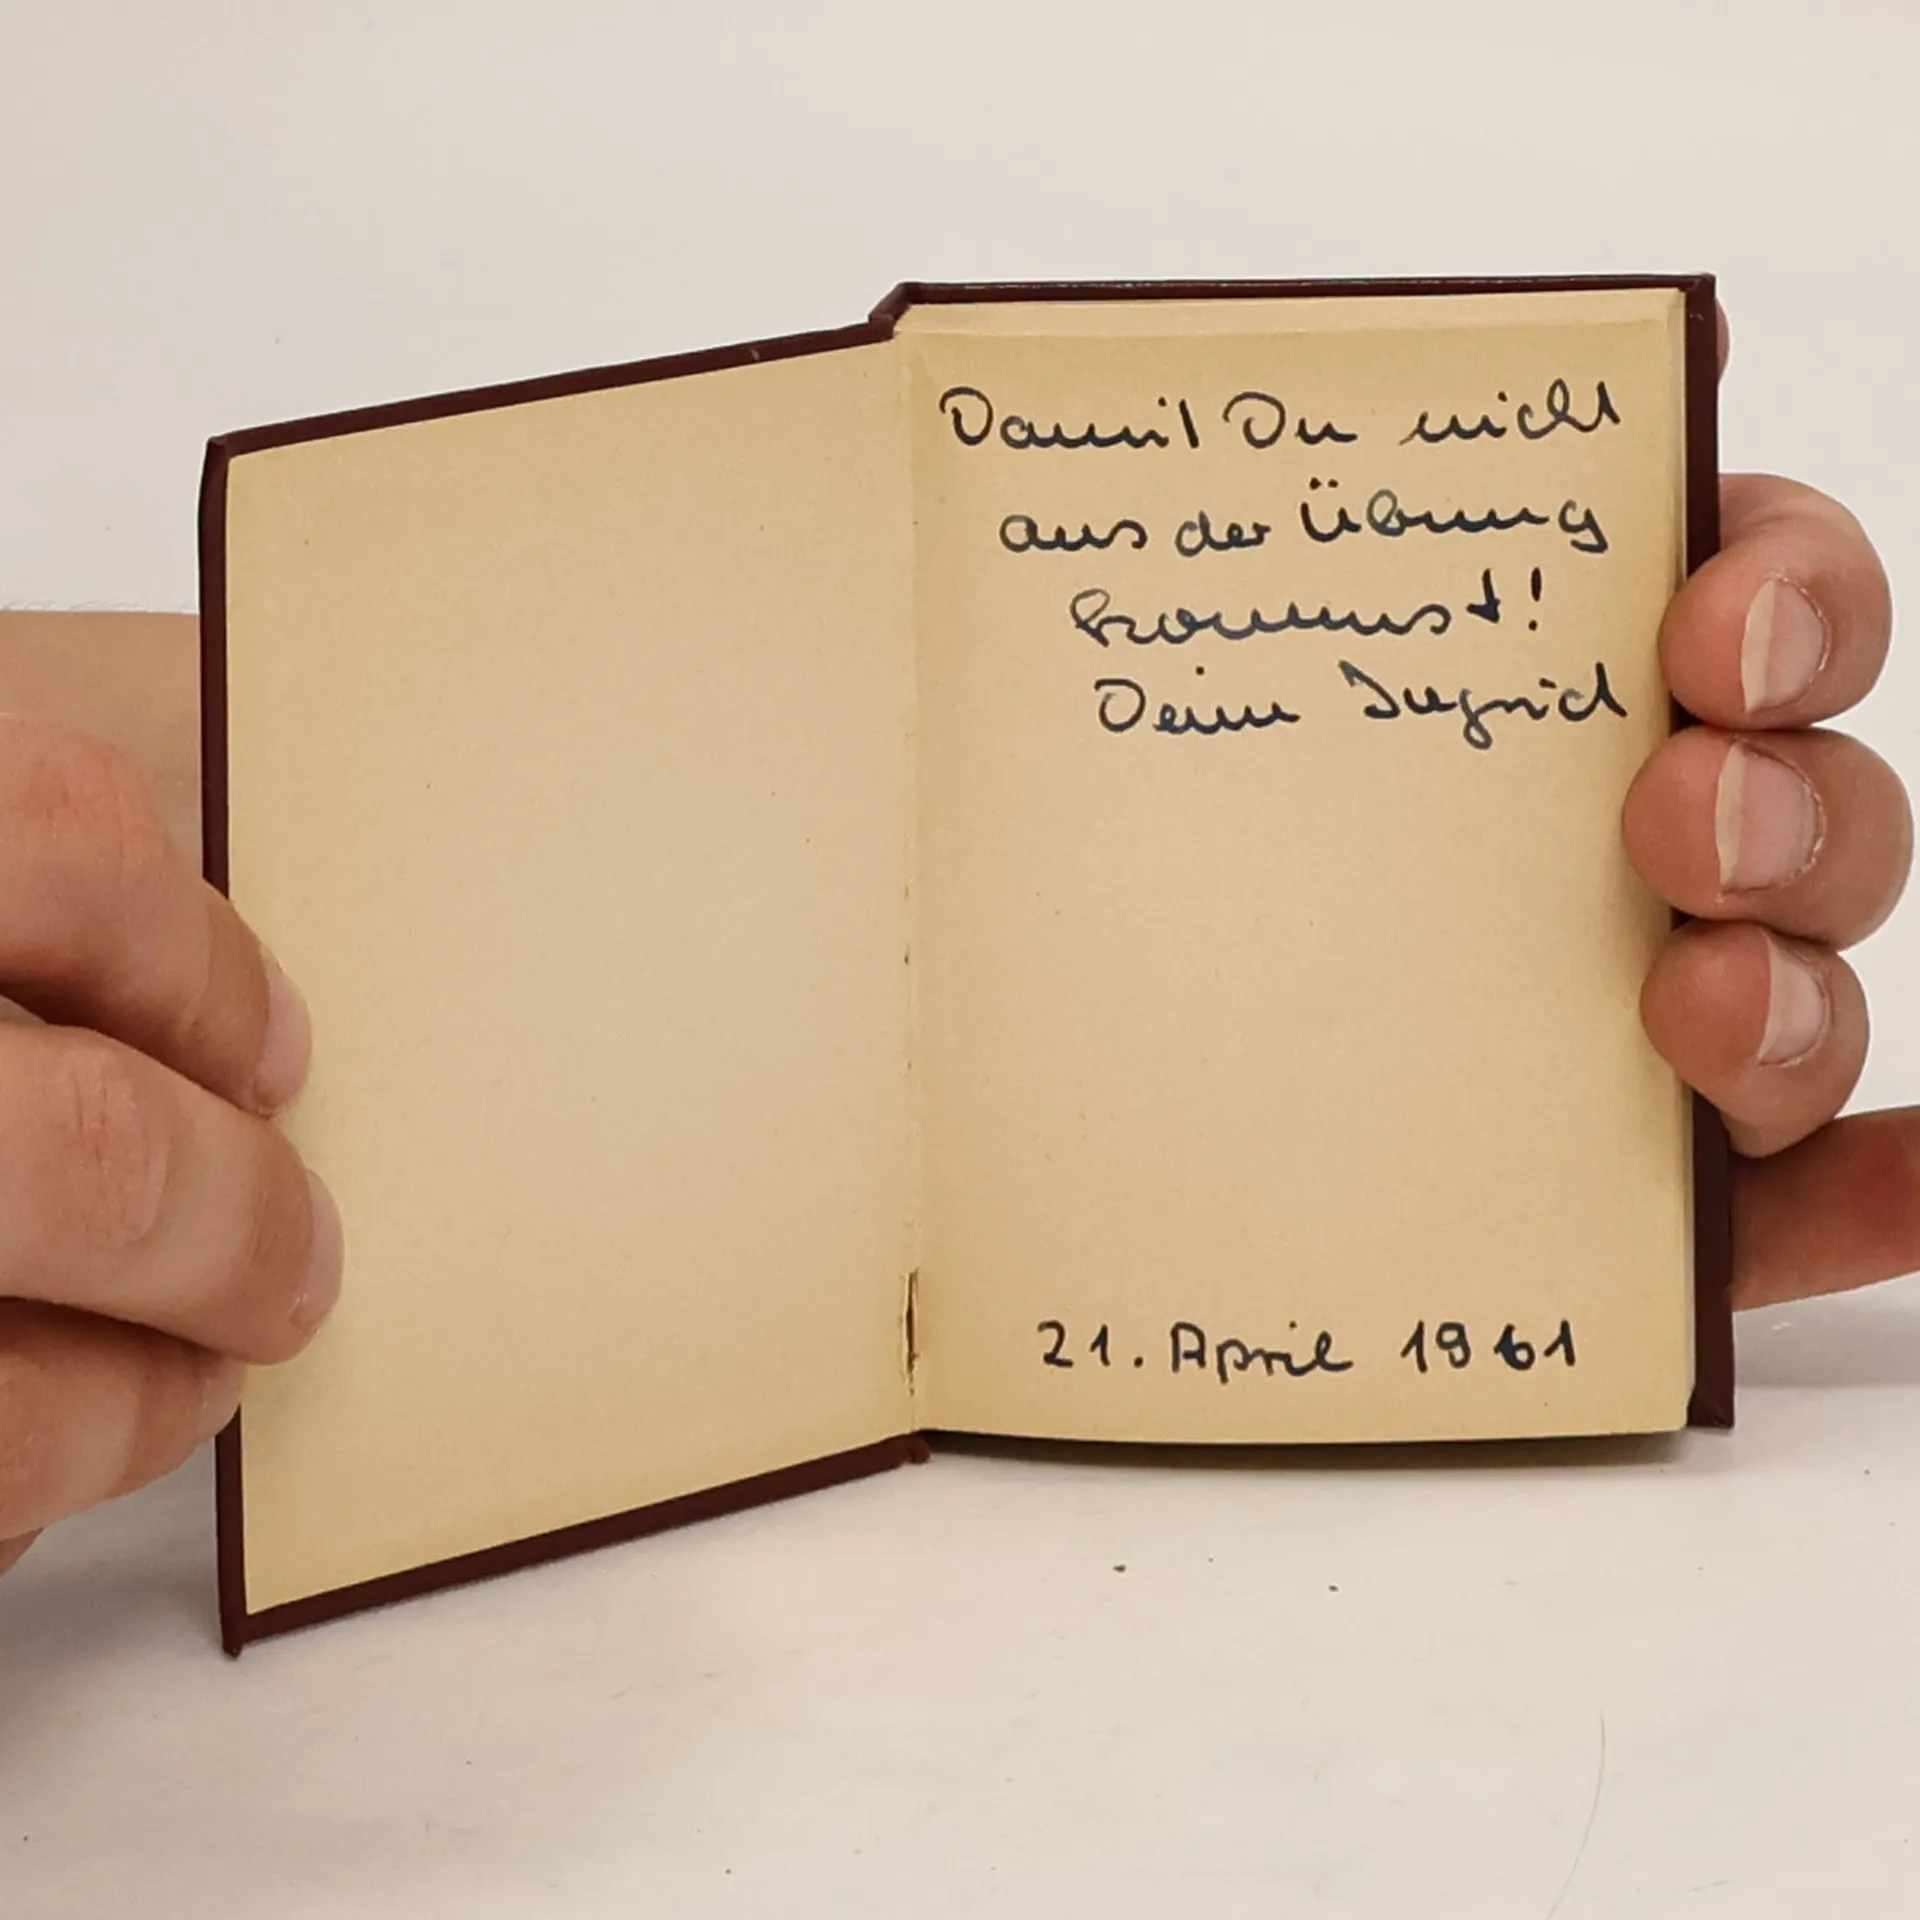 Damit Du nicht
aus der Übung
kommst!
Deine Ingrid
21. April 1961